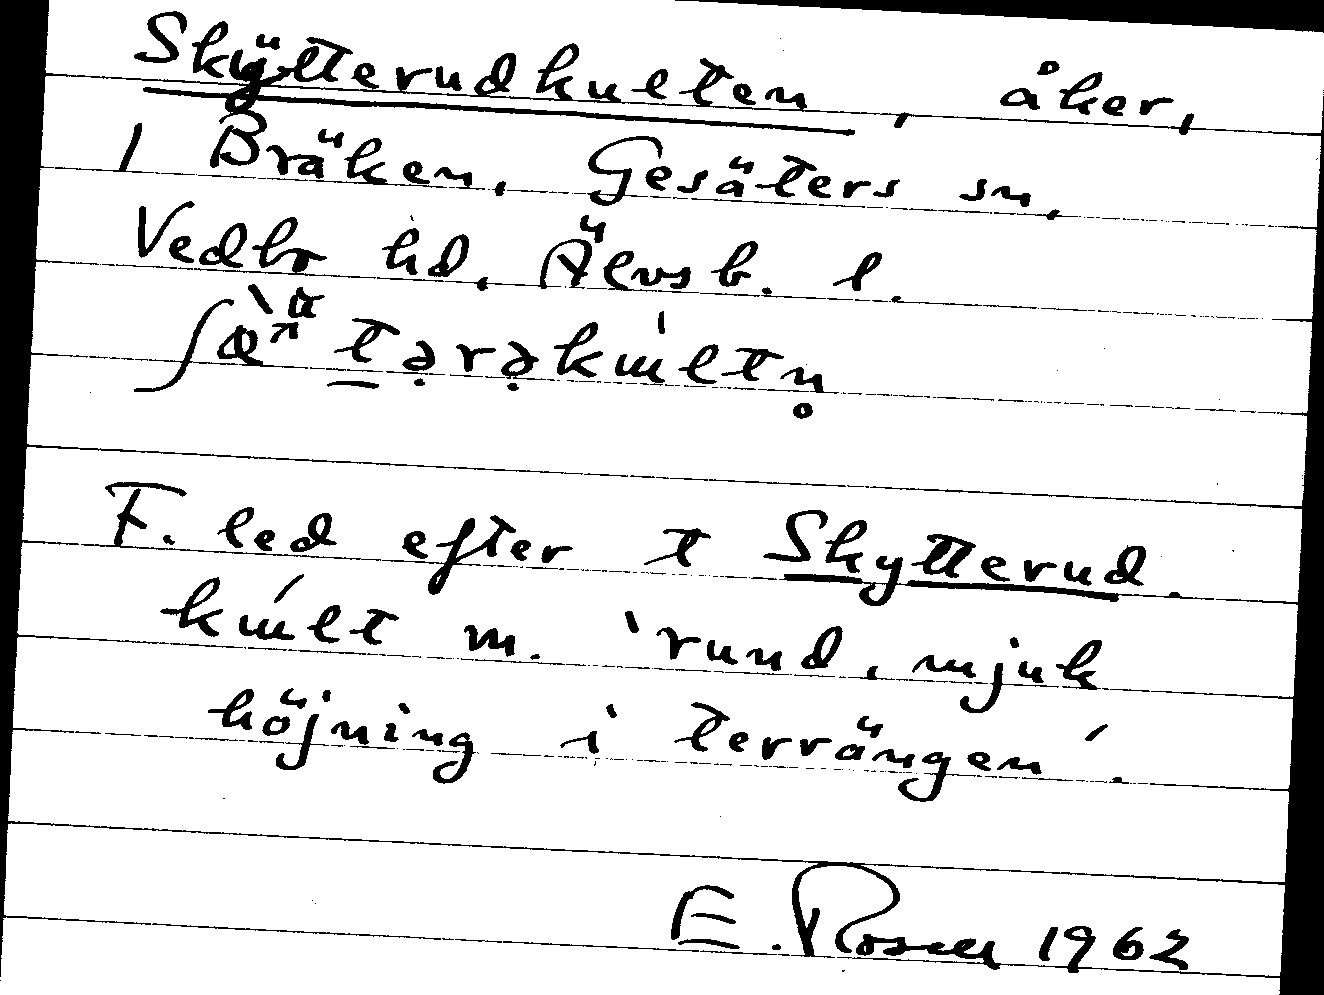 Skytterudkulten, åker,
i Bräken, Gesäters sn,
Vedbo hd, Älvsb. l.
F. led efter t Skytterud.
kɯ́lt m. 'rund, mjuk
höjning i terrängen'.
E. Rosell 1962